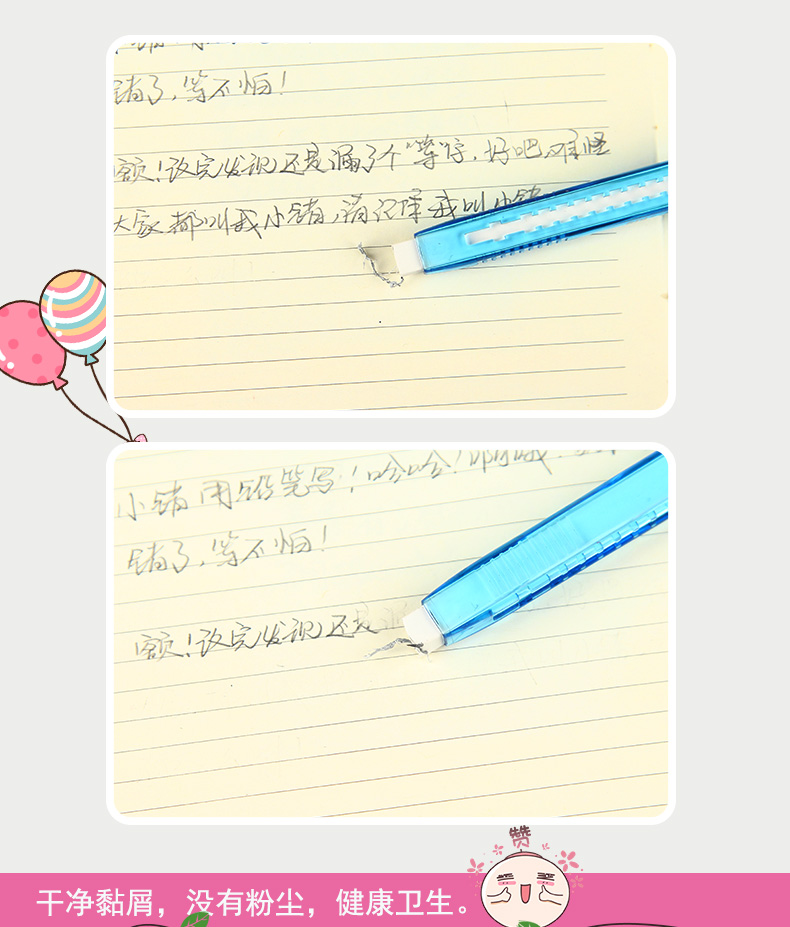 错了，等不怕！
额！改完发现还是漏了个“等”字，好吧，难怪
大家都叫我小错，请记住我叫小错
小错用铅笔写！哈哈！啊哦！
错了，等不怕！
额！改完发现还是
赞
干净黏屑，没有粉尘，健康卫生。